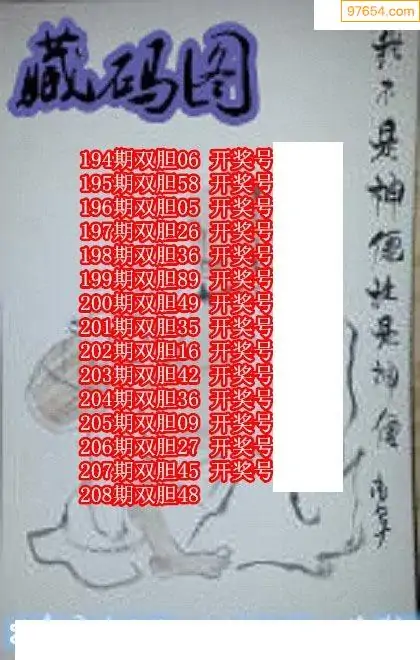 97654.com
藏码图
194期双胆06 开奖号
195期双胆58 开奖号
196期双胆05 开奖号
197期双胆26 开奖号
198期双胆36 开奖号
199期双胆89 开奖号
200期双胆49 开奖号
201期双胆35 开奖号
202期双胆16 开奖号
203期双胆42 开奖号
204期双胆36 开奖号
205期双胆09 开奖号
206期双胆27 开奖号
207期双胆45 开奖号
208期双胆48
是神便
是神